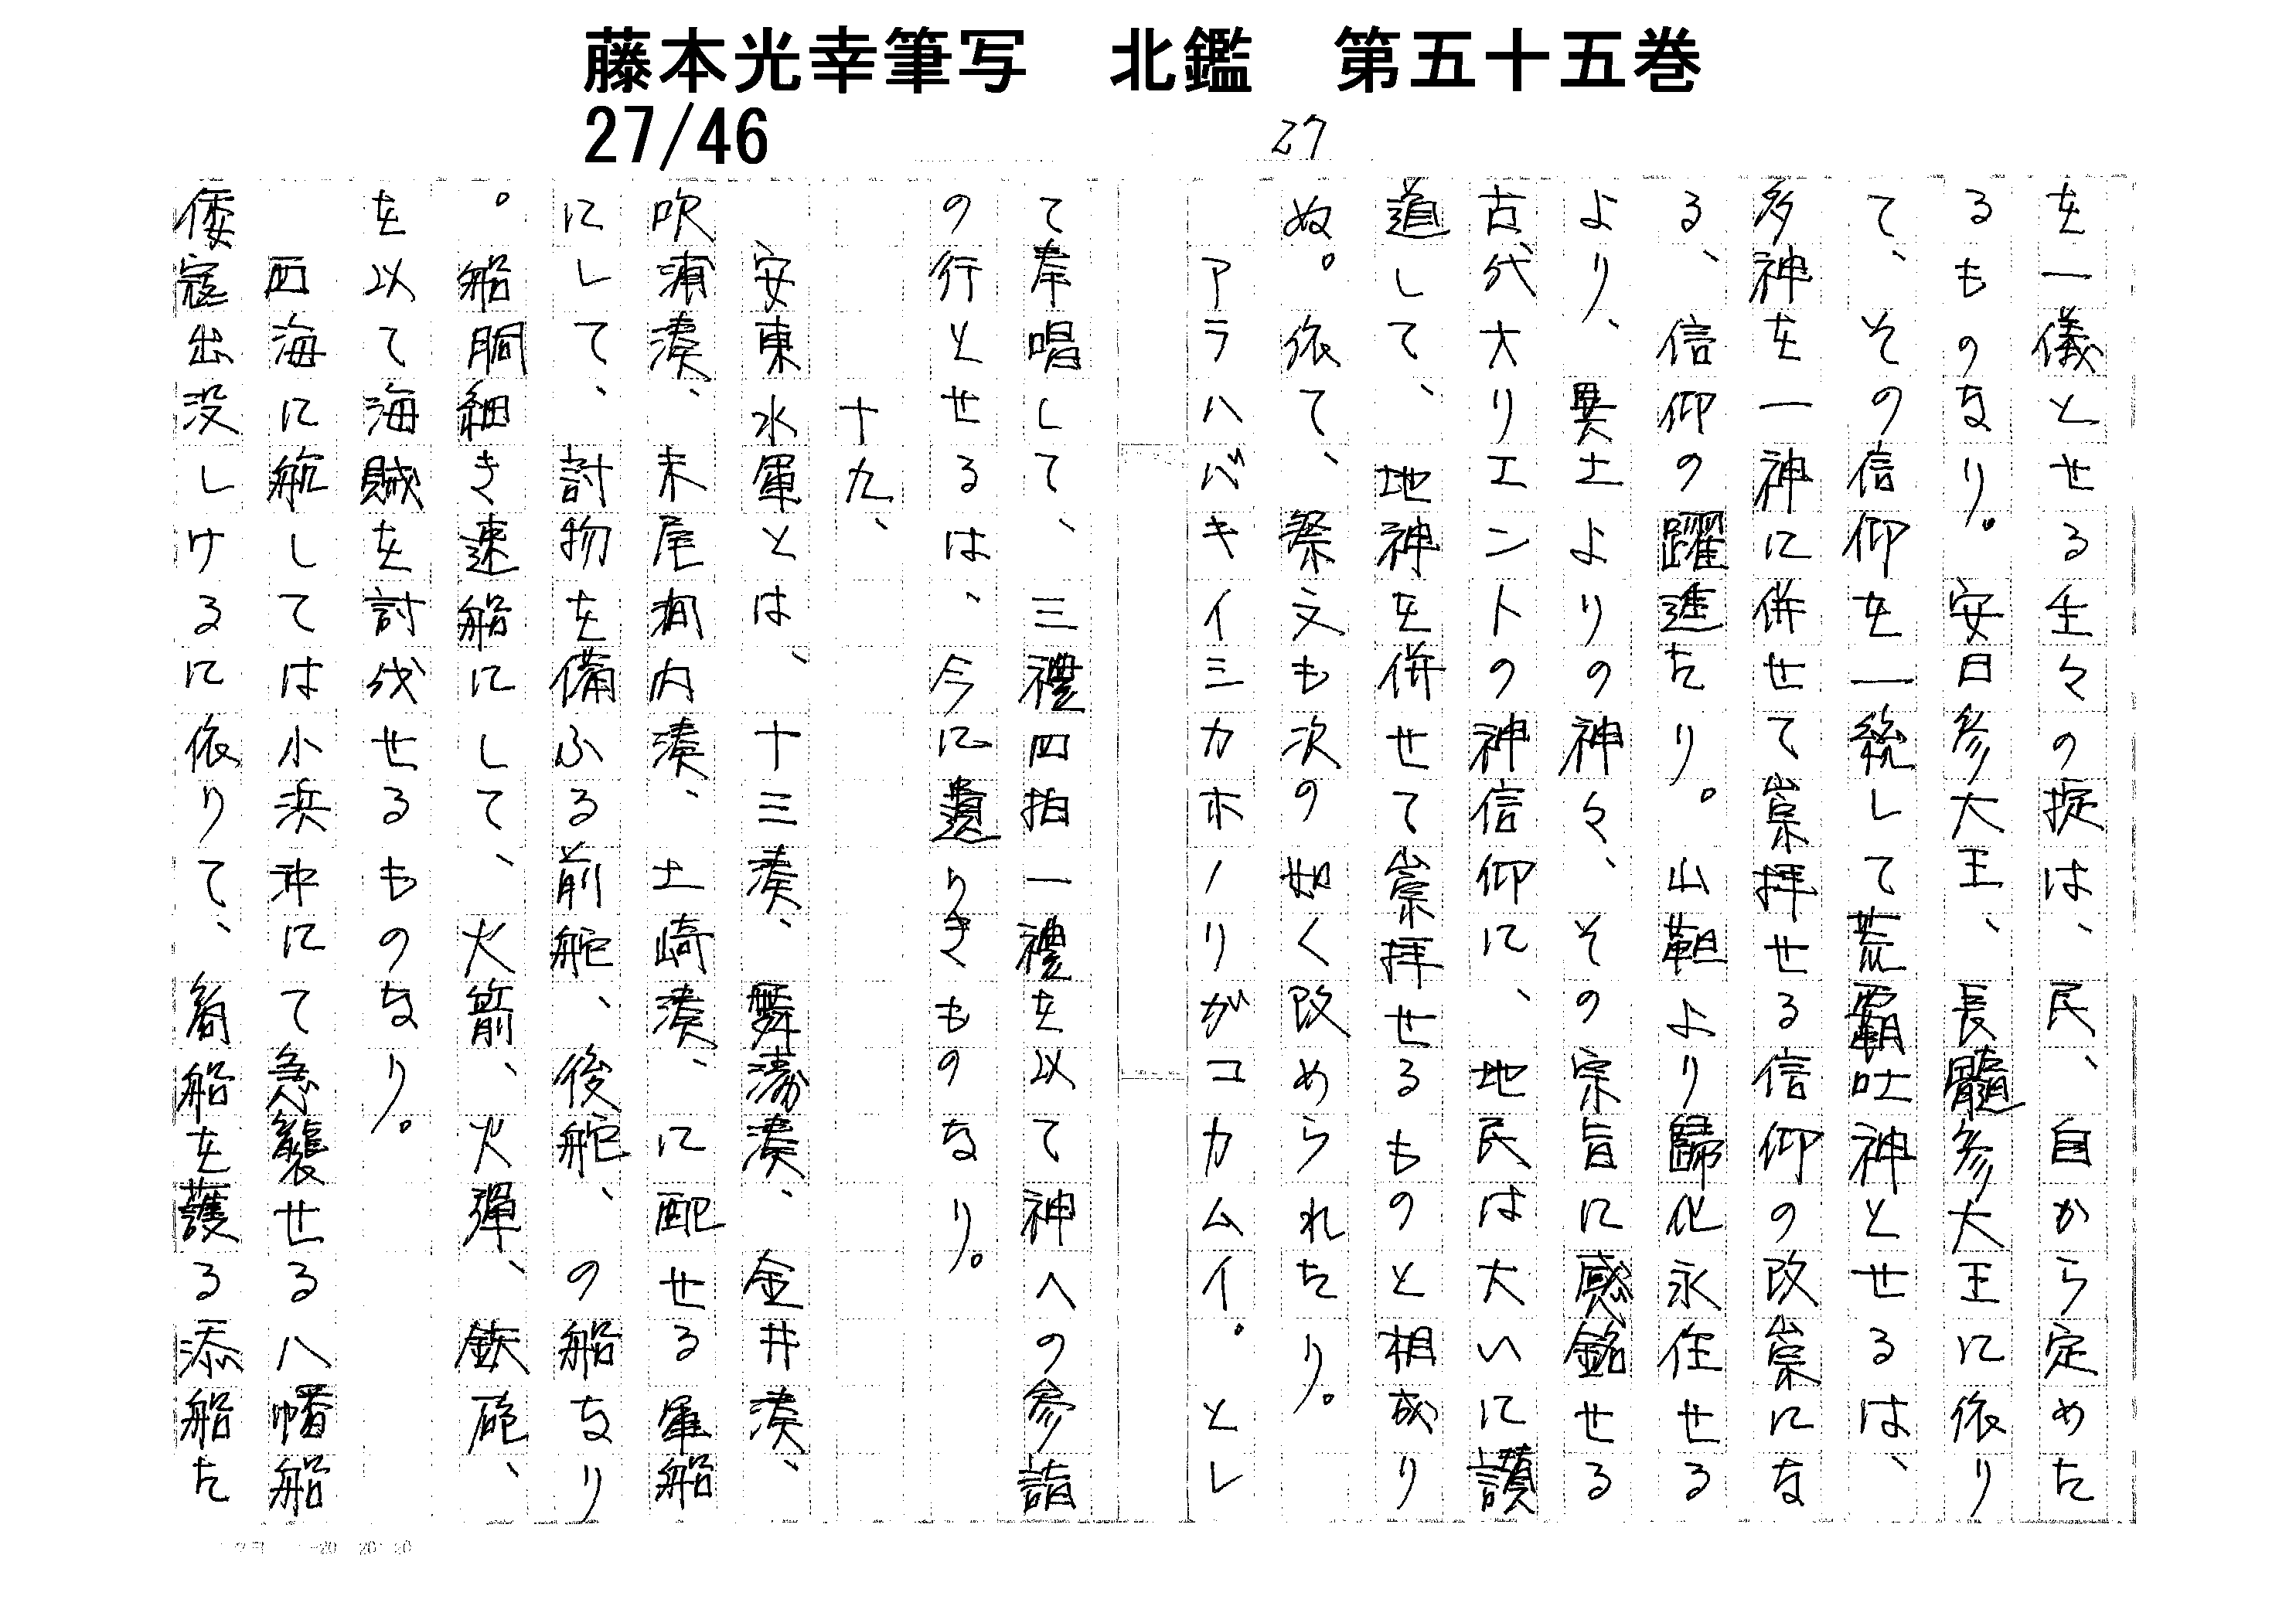 藤本光幸筆写　北鑑　第五十五巻
27/46
27
を一儀とせる王々の掟は、民、自から定めた
るものなり。安日彦大王、長髓彦大王に依り
て、その信仰を一統して荒覇吐神とせるは、
多神を一神に併せて崇拝せる信仰の改崇にな
る、信仰の躍進たり。山靼より歸化永住せる
より、異土よりの神々、その宗旨に感銘せる
古代大リエントの神信仰に、地民は大いに讃
道して、地神を併せて崇拝せるものと相成り
ぬ。依て、祭文も次の如く改められたり。
アラハバキイミカホノリガコカムイ。とし
て奉唱して、三禮四拍一禮を以て神への参詣
の行とせるは、今に遺りきものなり。
十九、
安東水軍とは、十三湊、舞濤湊、金井湊、
吹浦湊、末尾澗内湊、土崎湊、に配せる軍船
にして、討物を備ふる前舵、後舵、の船なり
。船胴細き速船にして、火箭、火弾、鉄砲、
を以て海賊を討伐せるものなり。
西海に航しては小浜沖にて急襲せる八幡船
倭寇出没しけるに依りて、商船を護る添船た